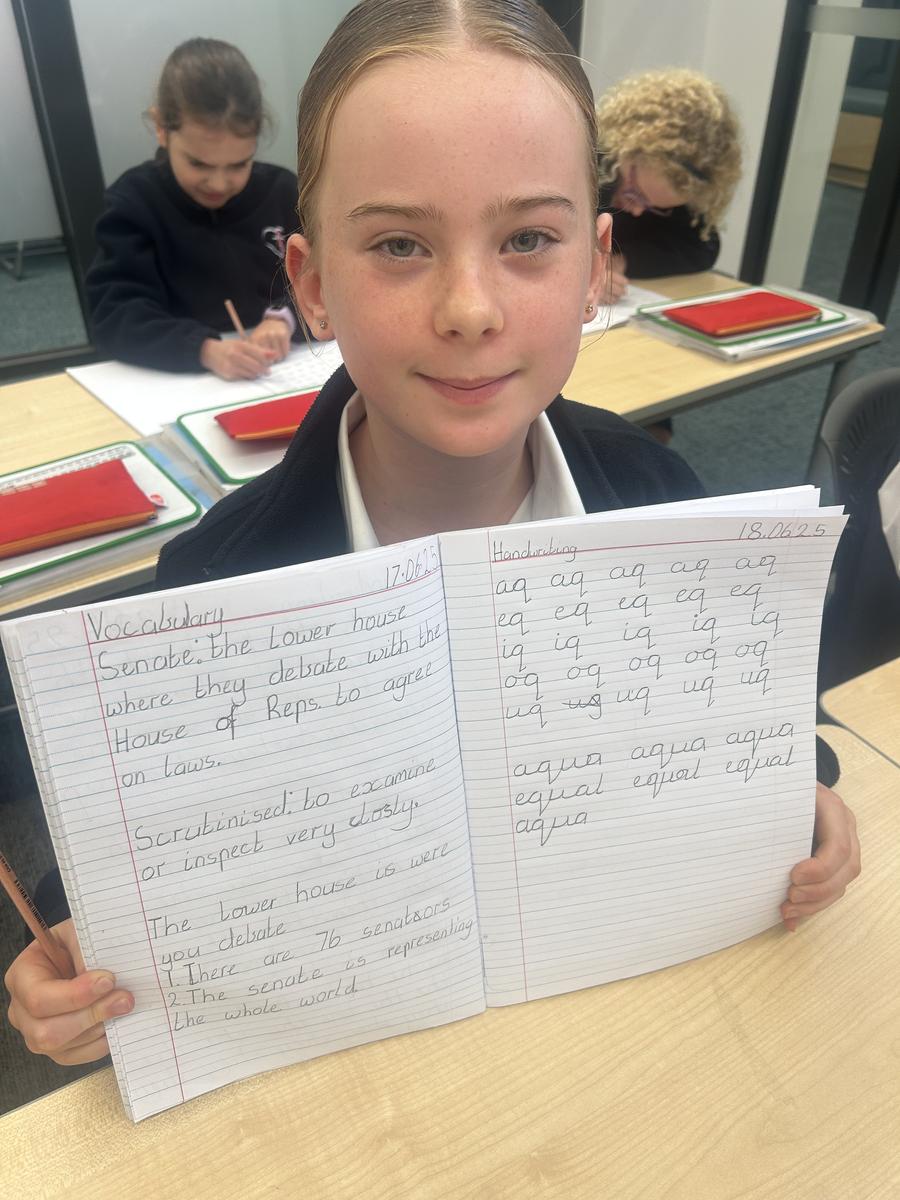 Vocabulary 17.06.25
Senate: the Lower house
where they debate with the
House of Reps. to agree
on laws.
Scrutinised: to examine
or inspect very closly.
The Lower house is were
you debate
1. There are 76 senators
2. The senate is representing
the whole world.
Handwriting 18.06.25
aq aq aq aq aq
eq eq eq eq eq
iq iq iq iq iq
oq oq oq oq oq
uq uq uq uq
aqua aqua aqua
equal equal equal
aqua